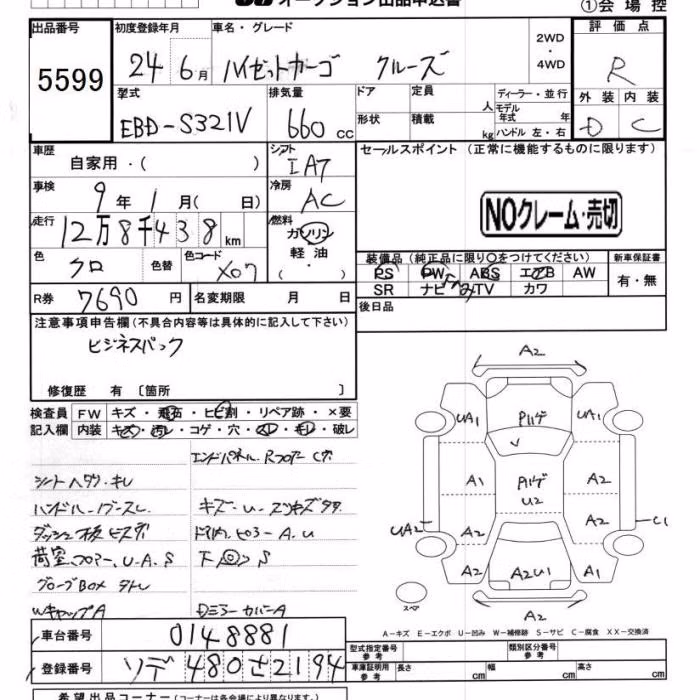 オークション出品申込書
①会場控
出品番号
5599
初度登録年月
24 6月
車名・グレード
ハイゼットカーゴ クルーズ
2WD
・
4WD
評価点
R
外装 内装
D C
型式
EBD-S321V
排気量
660 cc
ドア
形状
定員 人
積載 kg
ディーラー・並行
モデル年式 年
ハンドル 左・右
車歴
自家用・( )
シフト
IA7
セールスポイント (正常に機能するものに限ります)
NOクレーム・売切
車検
9年 1月( 日)
冷房
AC
走行
12万8千438 km
燃料
ガソリン
軽油・
( )
色
クロ
色替
色コード
X07
装備品 (純正品に限り○をつけてください)
PS PW ABS エアB AW
SR ナビ TV カワ
新車保証書
有・無
R券
7690 円
名変期限 月 日
後日品
注意事項申告欄(不具合内容等は具体的に記入して下さい)
ビジネスパック
修復歴 有〔箇所 〕
検査員記入欄
FW キズ・飛石・ヒビ割・リペア跡・×要
内装 キズ・汚レ・コゲ・穴・スレ・キレ・破レ
エンドパネル.Rフロアー C穴
シートヘタリ・キレ
キズ・U・スリキズタタ
ダッシュ板ビス穴
荷室.フロアー.U.A.S
下回りS
グローブBOX
WキャップA
DミラーカバーA
A2
UA1
Pハゲ
UA1
A1
Pハゲ
U2
A2
UA2
A2
A2
C1
A2
A2U1
A1
A2
スペア
A-キズ E-エクボ U-凹み W-補修跡 S-サビ C-腐食 XX-交換済
車台番号
0148881
登録番号
ソデ480さ2194
型式指定番号
類別区分番号
車庫証明用参考
長さ cm
幅 cm
高さ cm
希望出品コーナー(コーナーは各会場により異なります。)